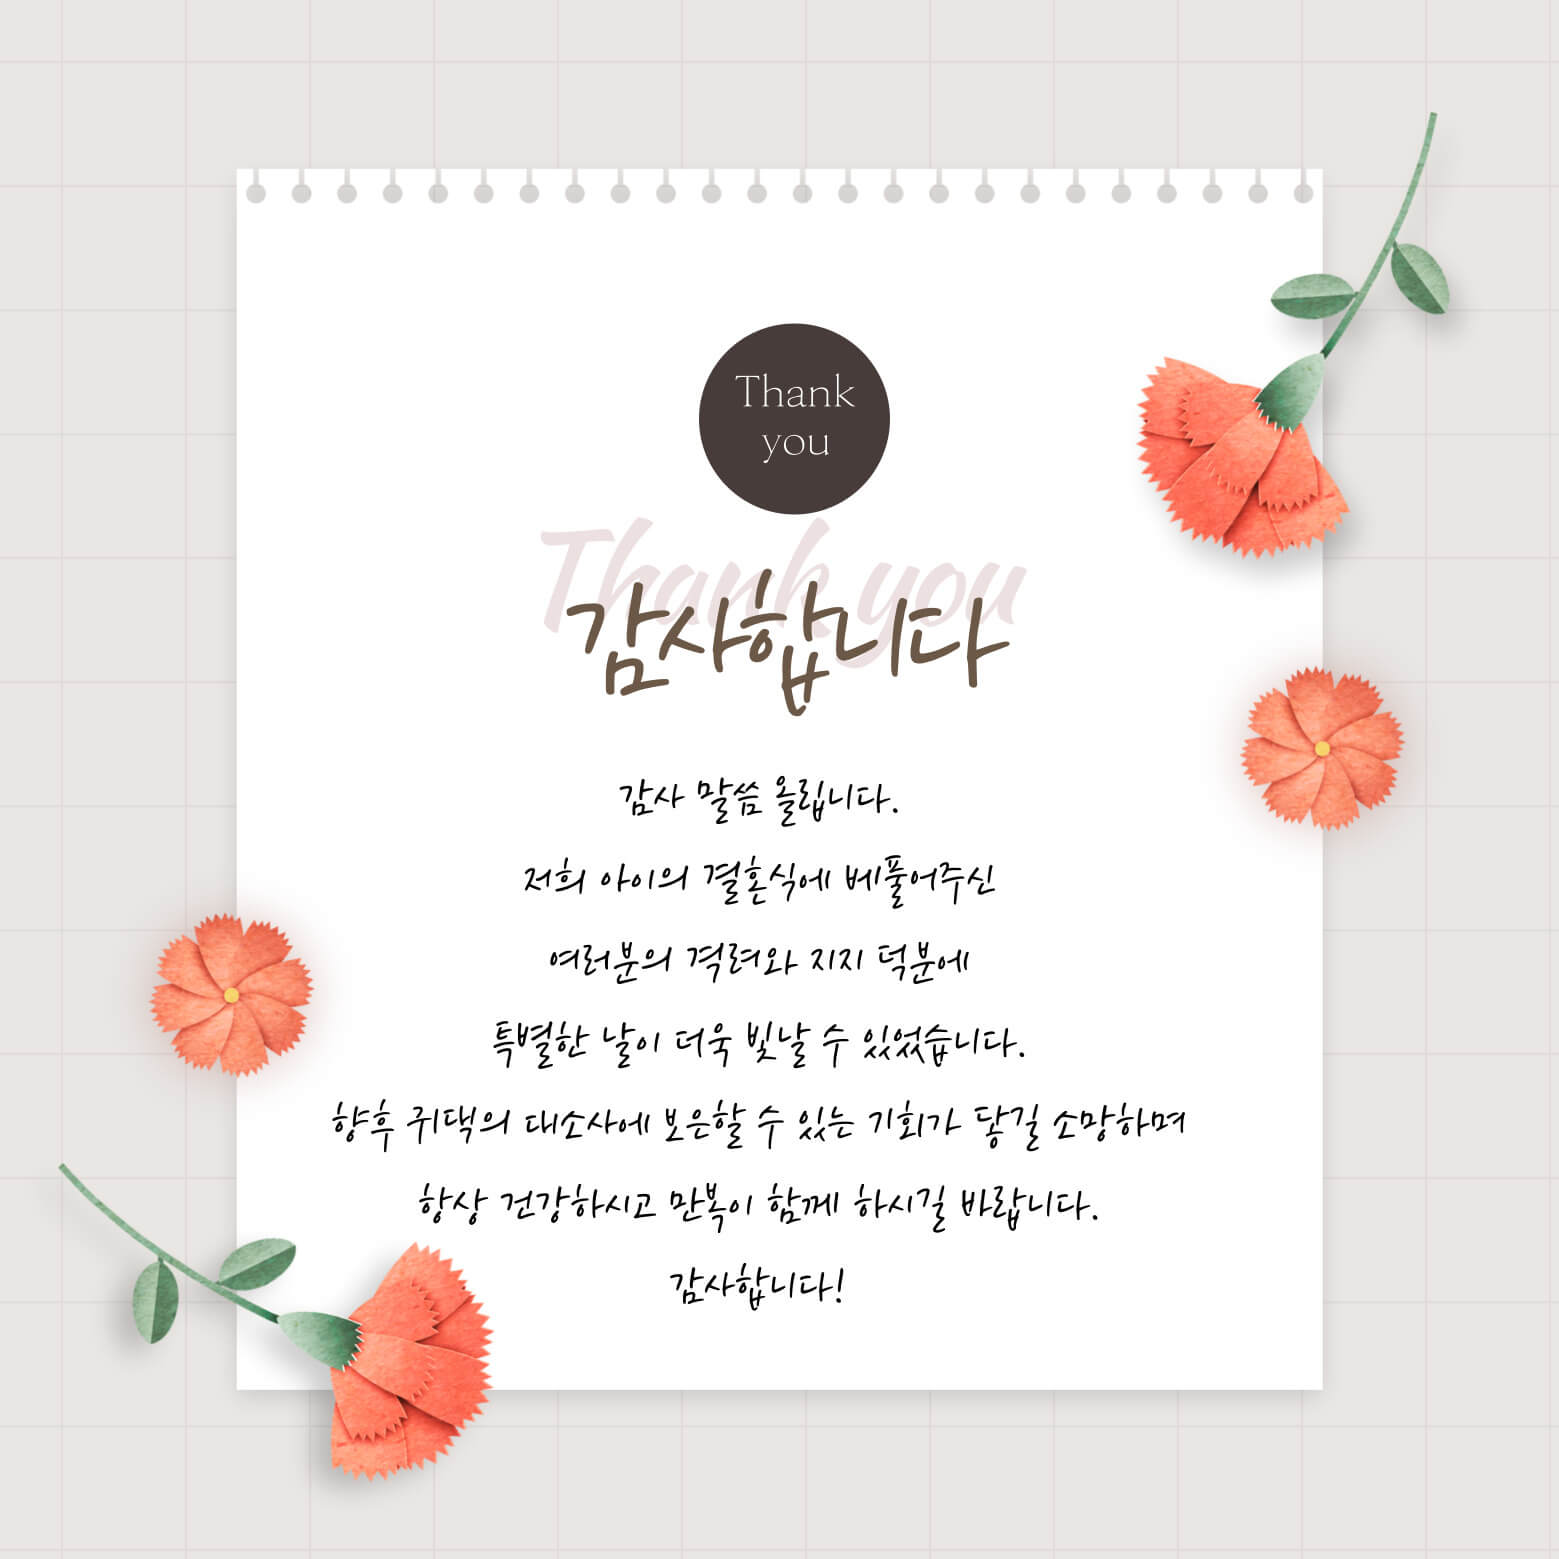 Thank
you
Thank you
감사합니다
감사 말씀 올립니다.
저희 아이의 결혼식에 베풀어주신
여러분의 격려와 지지 덕분에
특별한 날이 더욱 빛날 수 있었습니다.
향후 귀댁의 대소사에 보은할 수 있는 기회가 닿길 소망하며
항상 건강하시고 만복이 함께 하시길 바랍니다.
감사합니다!